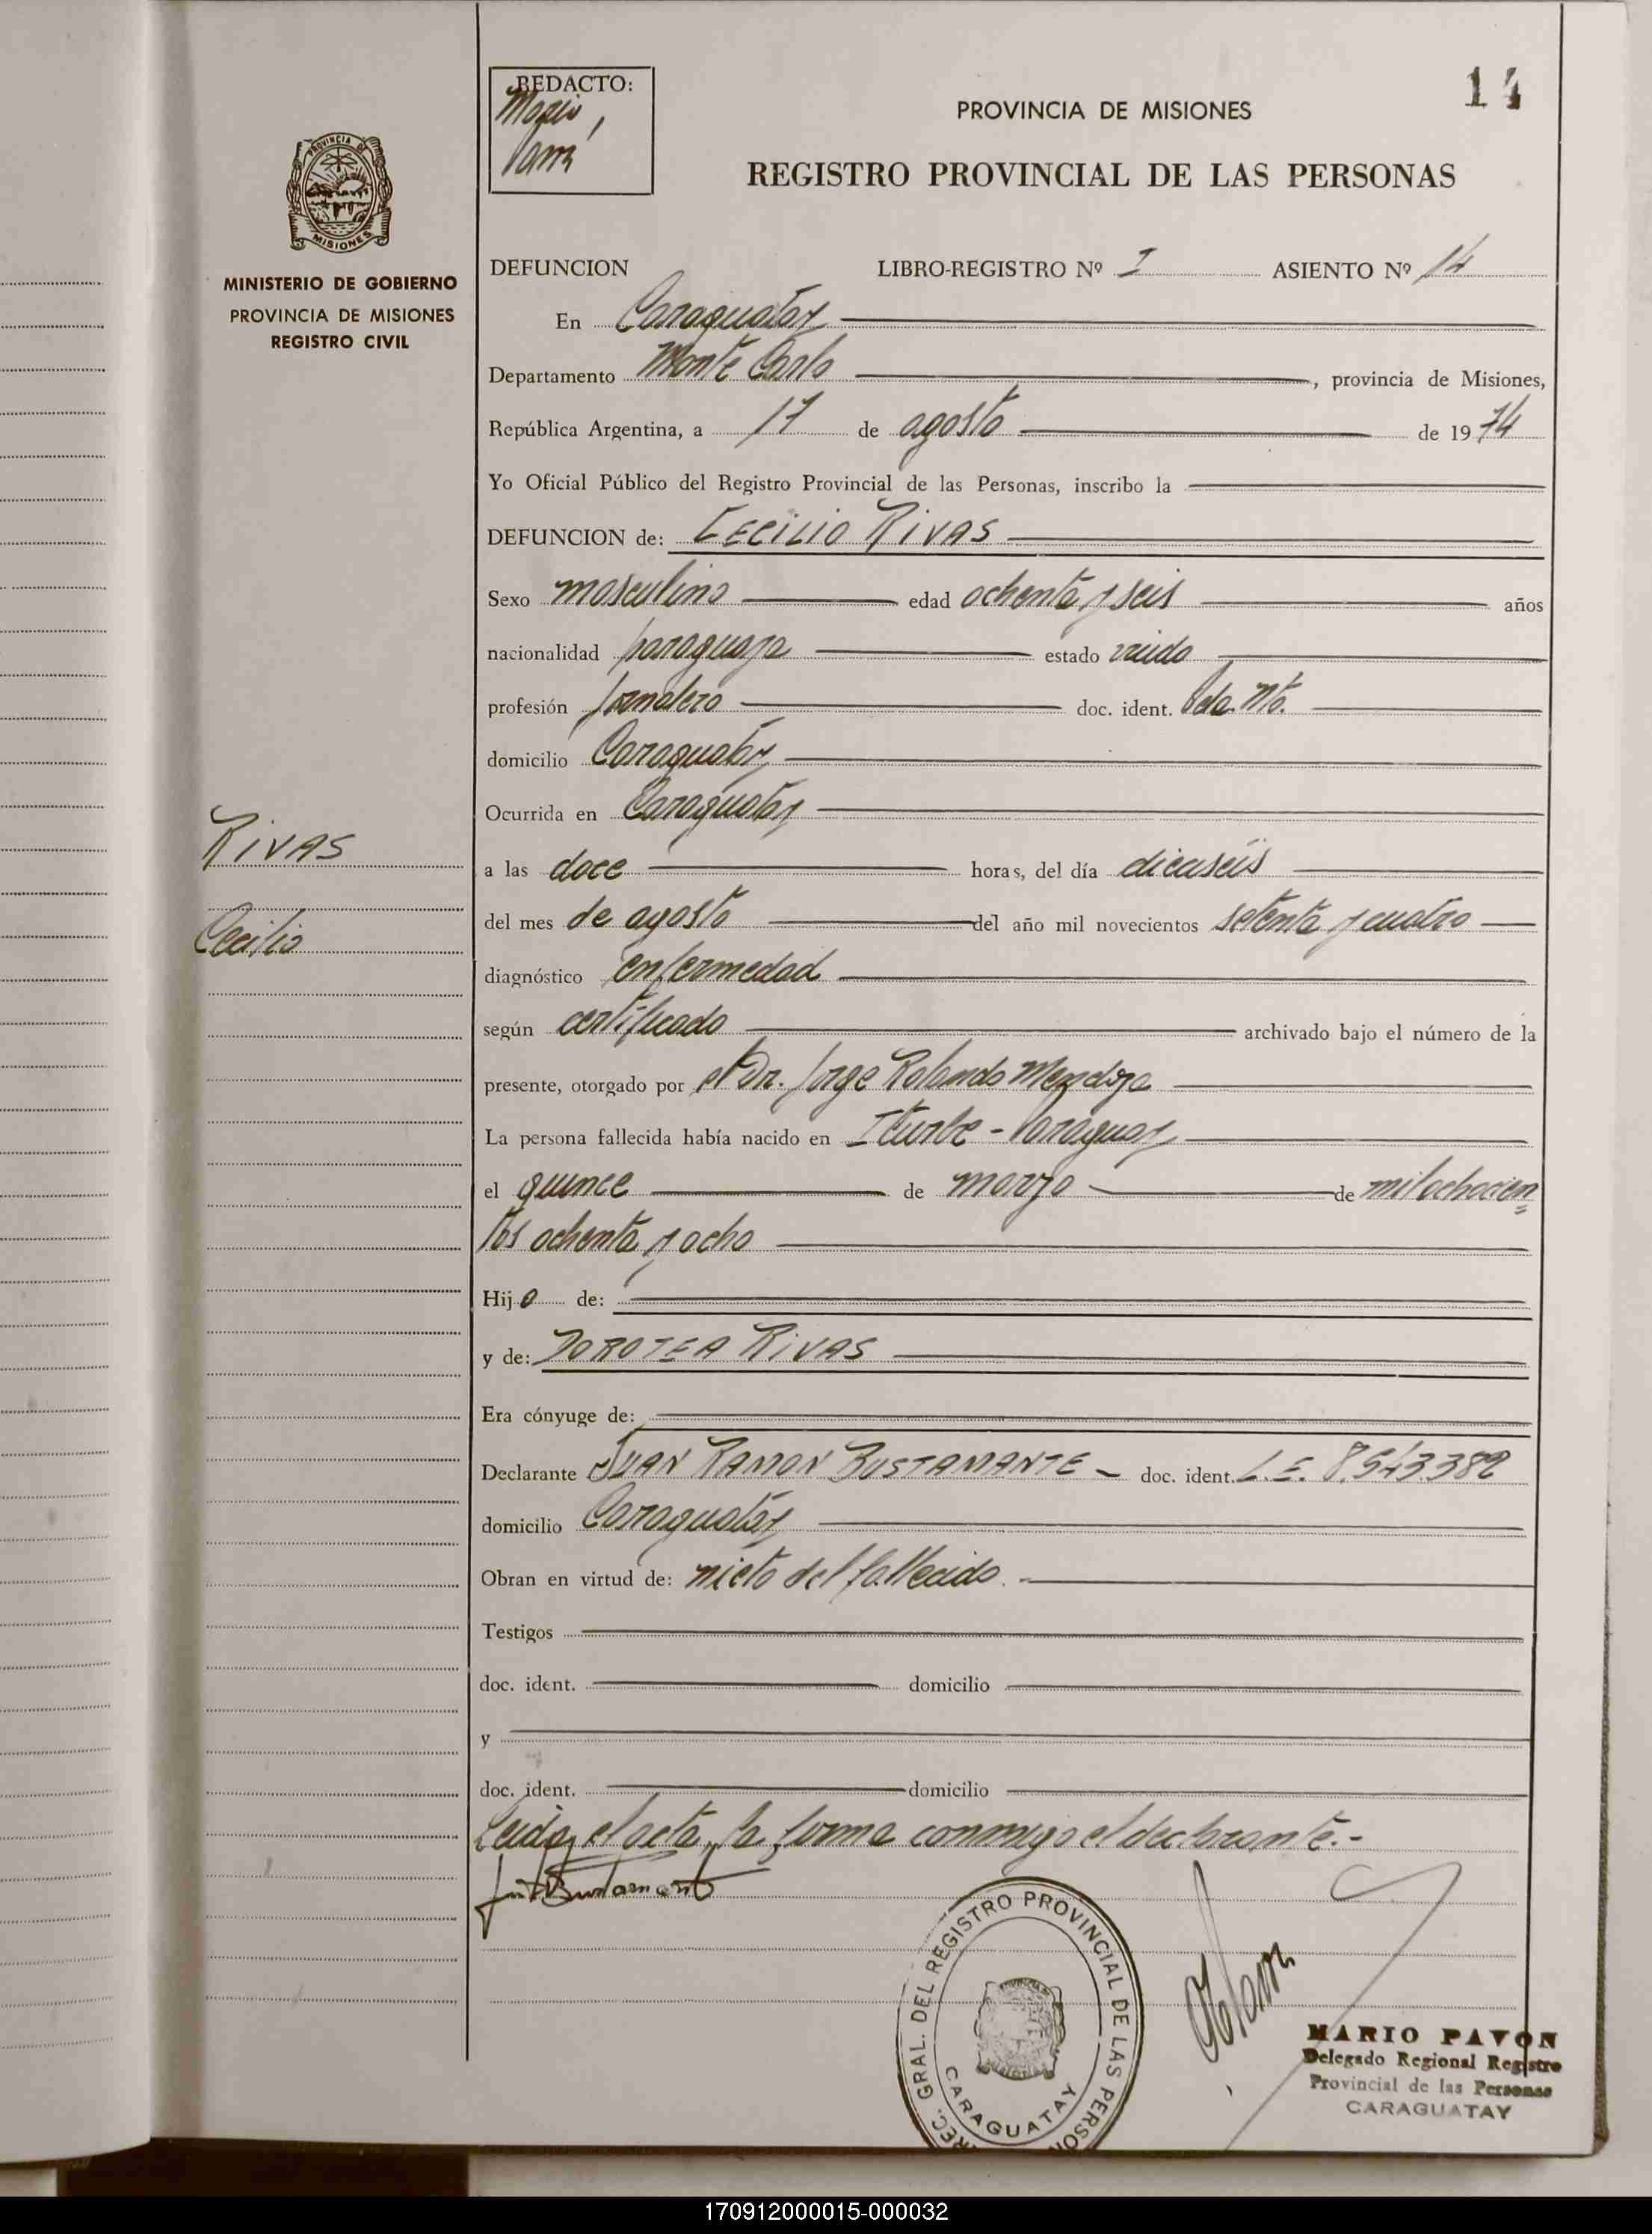 14
REDACTO:
Mario
PROVINCIA DE MISIONES
REGISTRO PROVINCIAL DE LAS PERSONAS
PROVINCIA DE
MISIONES
MINISTERIO DE GOBIERNO
PROVINCIA DE MISIONES
REGISTRO CIVIL
DEFUNCION LIBRO-REGISTRO Nº I ASIENTO Nº 14
En Caraguatay
Departamento Monte Carlo, provincia de Misiones,
República Argentina, a 17 de agosto de 1974
Yo Oficial Público del Registro Provincial de las Personas, inscribo la
DEFUNCION de: CECILIO RIVAS
Sexo masculino edad ochenta y seis años
nacionalidad paraguaya estado viudo
profesión jornalero doc. ident.
domicilio Caraguatay
Ocurrida en Caraguatay
RIVAS
a las doce horas, del día dieciseis
Cecilio
del mes de agosto del año mil novecientos setenta y cuatro
diagnóstico enfermedad
según certificado archivado bajo el número de la
presente, otorgado por el Dr. Jorge Rolando Mendoza
La persona fallecida había nacido en Iturbe - Paraguay
el quince de marzo de mil ochocien=
tos ochenta y ocho
Hijo de:
y de: DOROTEA RIVAS
Era cónyuge de:
Declarante JUAN RAMON BUSTAMANTE - doc. ident. L.E. 8.543.382
domicilio Caraguatay
Obran en virtud de: nieto del fallecido.
Testigos
doc. ident. domicilio
y
doc. ident. domicilio
Leida el acta, la firma conmigo el declarante.-
REC. GRAL. DEL REGISTRO PROVINCIAL DE LAS PERSO
CARAGUATAY
MARIO PAVON
Delegado Regional Registro
Provincial de las Personas
CARAGUATAY
170912000015-000032